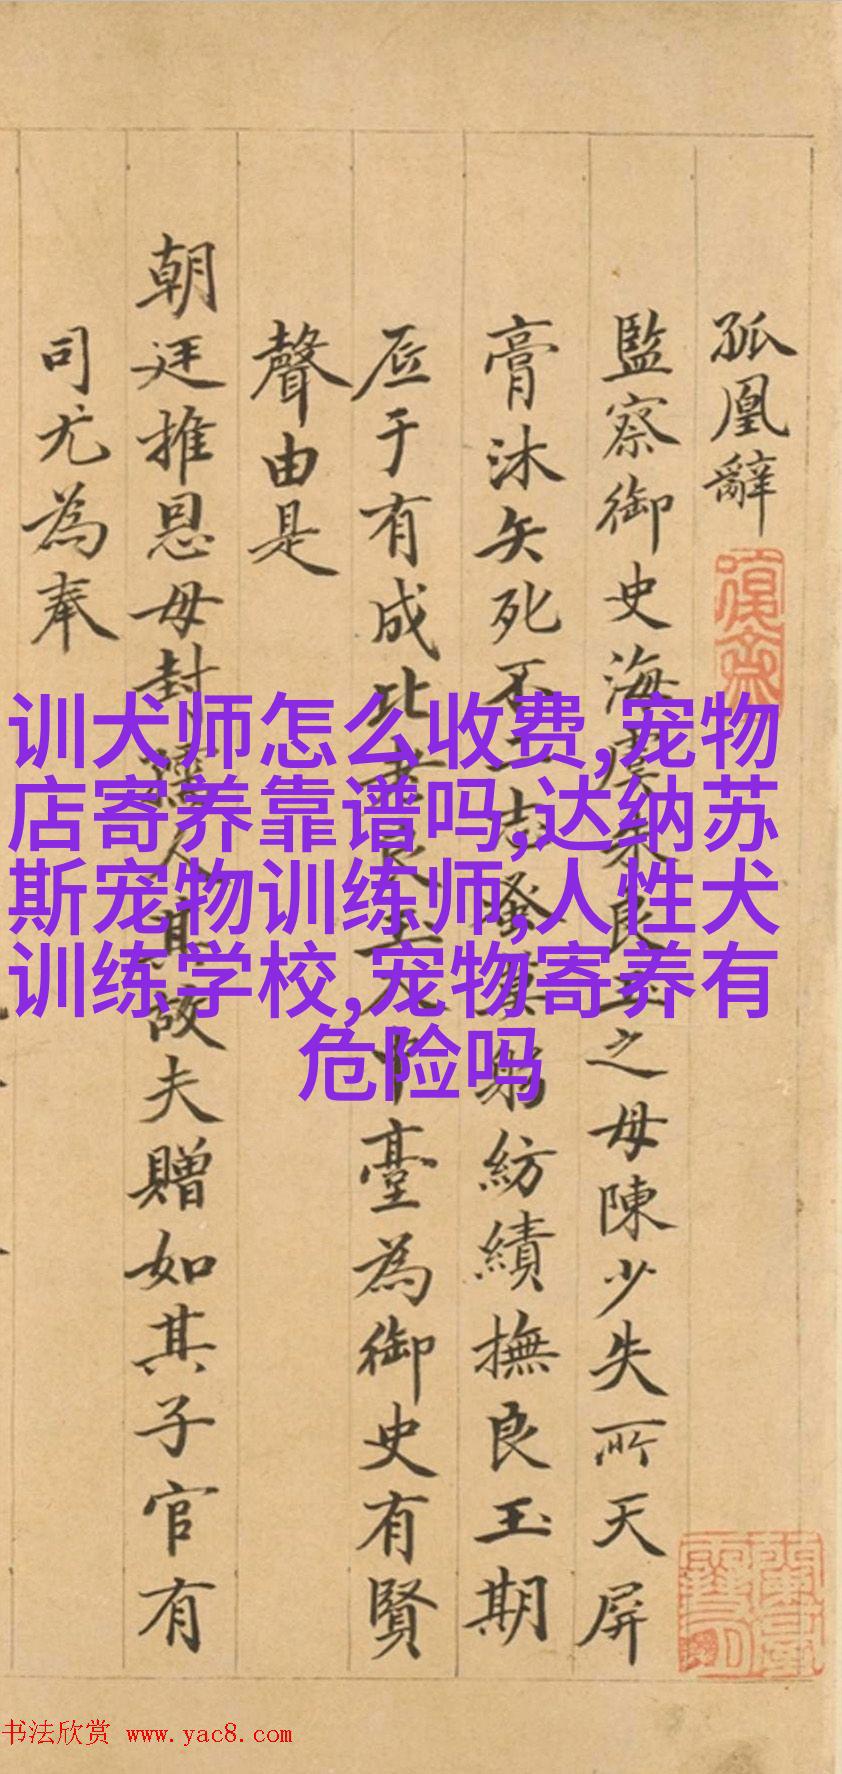 孤凰辭
監察御史海虞朱良玉之母陳少失所天屏
膏沐矢死不二志蚤暮躬紡績撫良玉期
厎于有成比者良玉入中臺為御史有賢
聲由是
朝廷推恩母封孺人其故夫贈如其子官有
司尤為奉
训犬师怎么收费,宠物
店寄养靠谱吗,达纳苏
斯宠物训练师,人性犬
训练学校,宠物寄养有
危险吗
书法欣赏 www.yac8.com